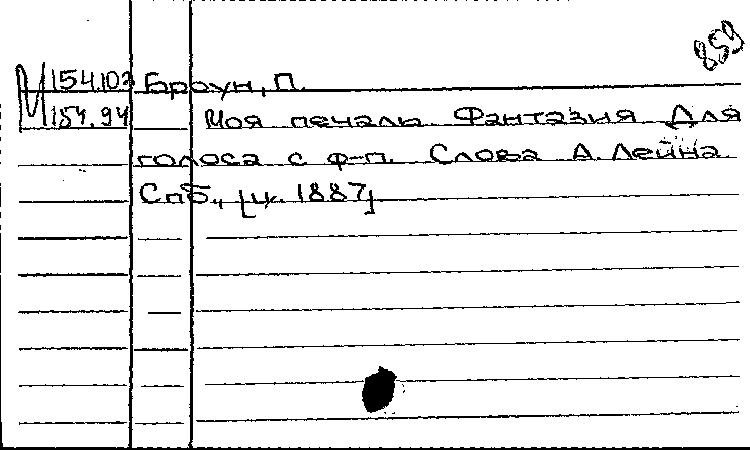 859
М 154.103 Броун, П.
154.94 Моя печаль. Фантазия для
голоса с ф-п. Слова А. Лейна
Спб., [ц. 1887]